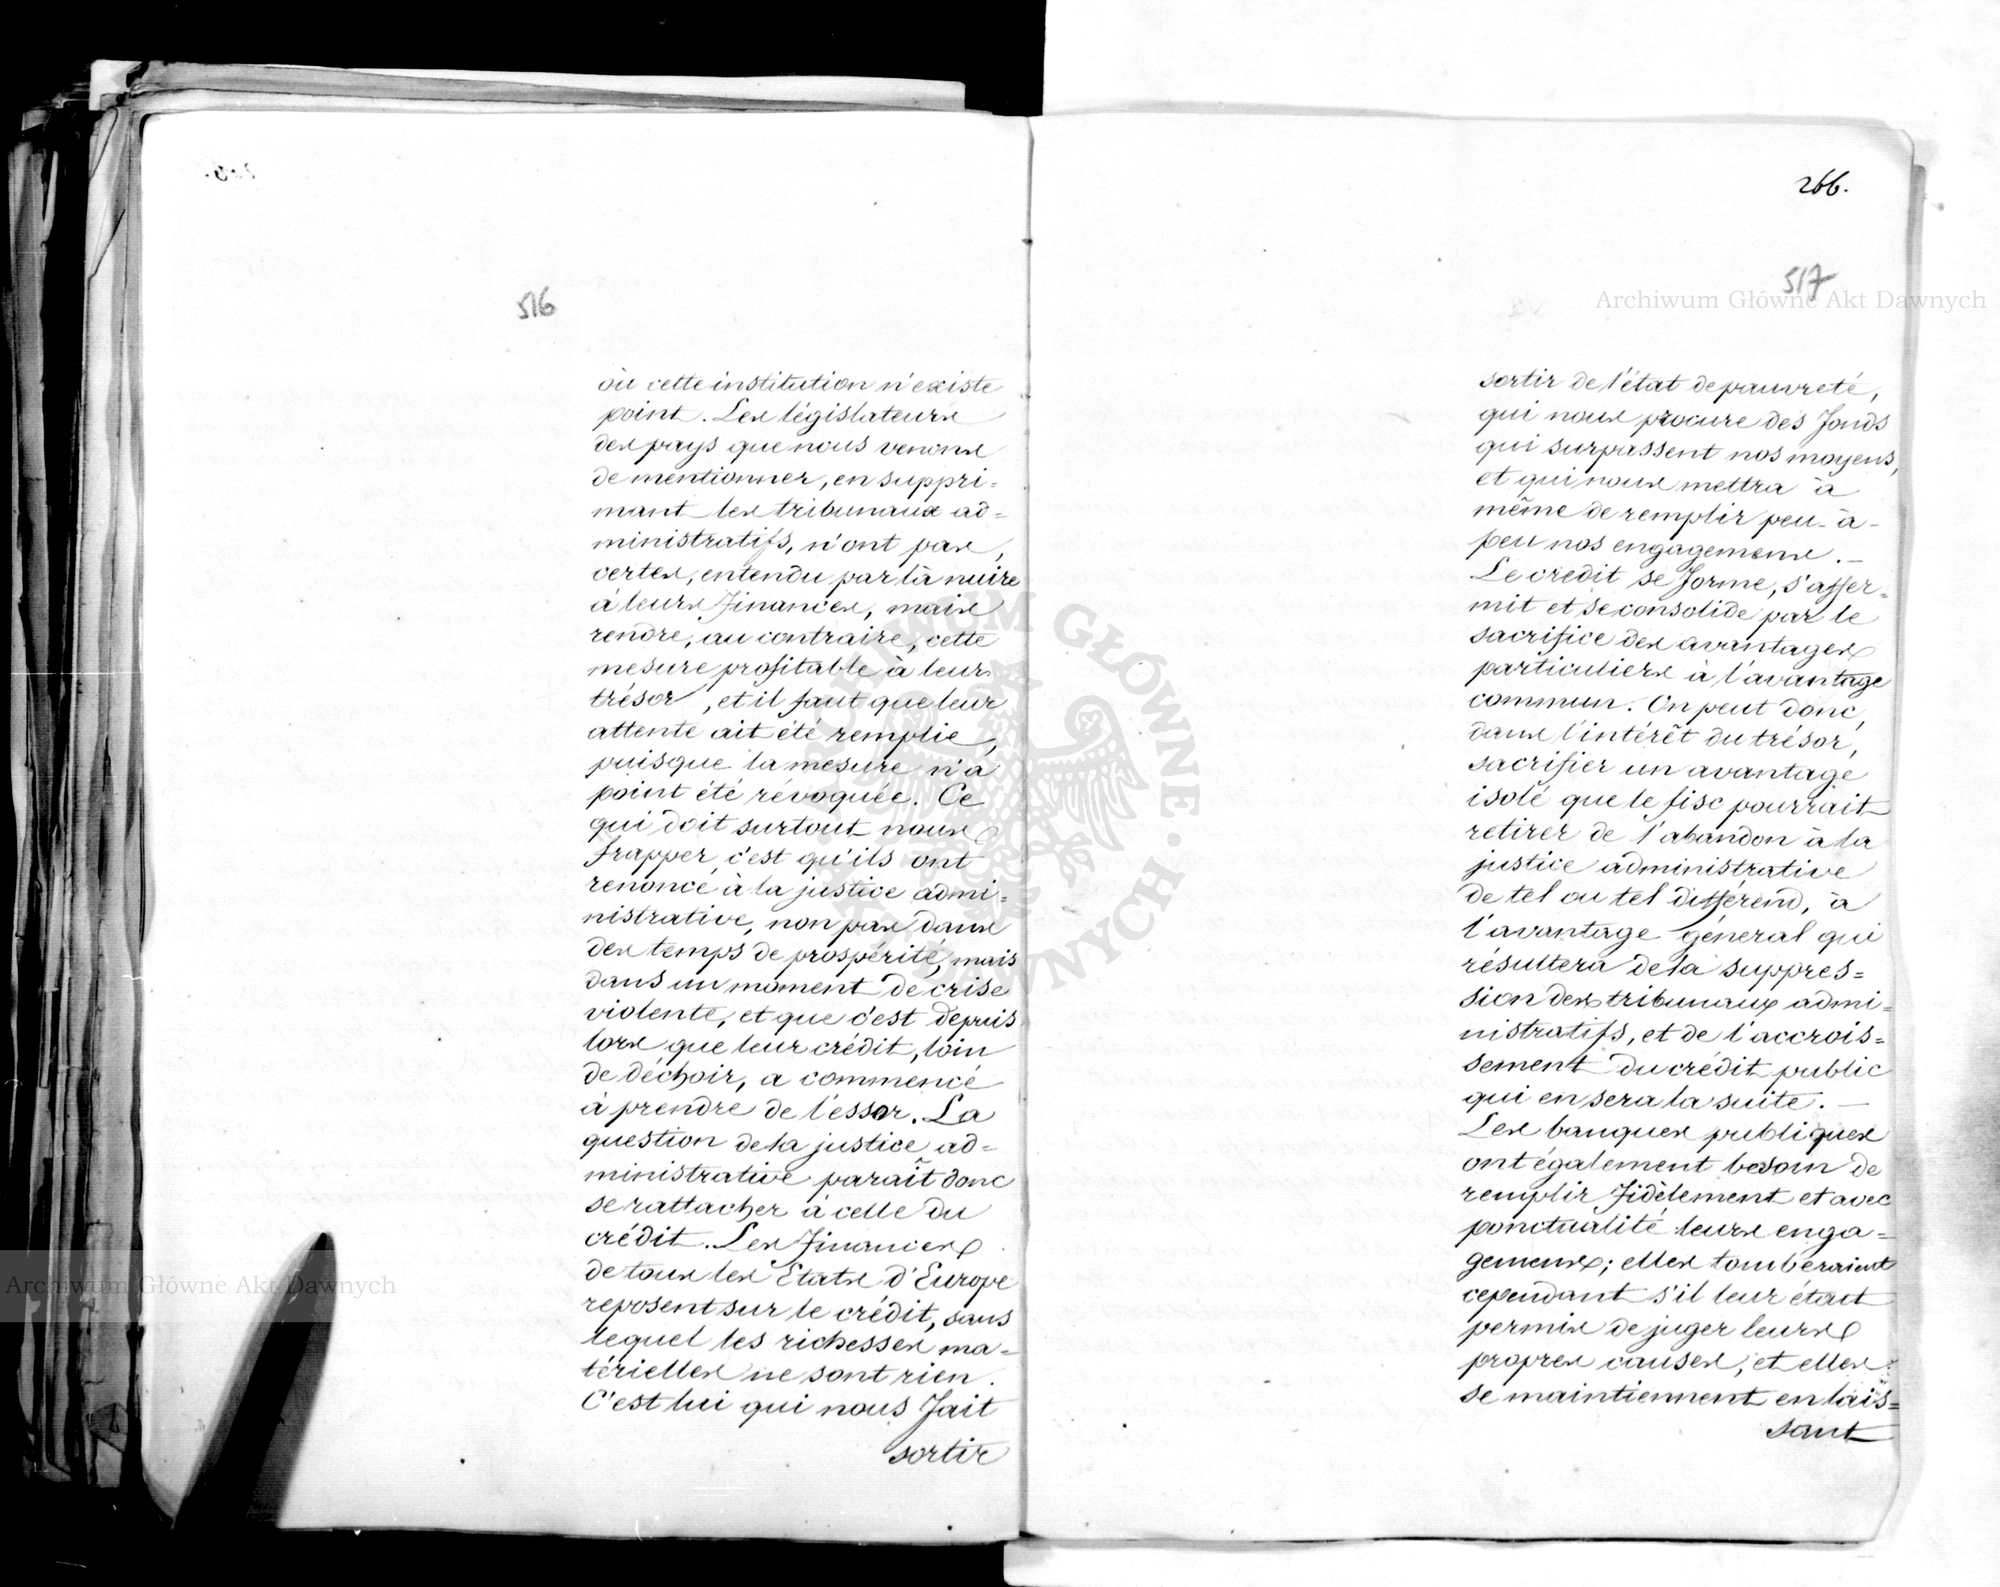 516
où cette institution n'existe
point. Les législateurs
des pays que nous venons
de mentionner, en suppri=
mant les tribunaux ad=
ministratifs, n'ont pas,
certes, entendu par là nuire
à leurs finances, mais
rendre, au contraire, cette
mesure profitable à leur
trésor, et il faut que leur
attente ait été remplie,
puisque la mesure n'a
point été révoquée. Ce
qui doit surtout nous
frapper, c'est qu'ils ont
renoncé à la justice admi=
nistrative, non pas dans
des temps de prospérité, mais
dans un moment de crise
violente, et que c'est depuis
lors que leur crédit, loin
de déchoir, a commencé
à prendre de l'essor. La
question de la justice ad=
ministrative paraît donc
se rattacher à celle du
crédit. Les finances
de tous les Etats d'Europe
reposent sur le crédit, sans
lequel les richesses ma=
térielles ne sont rien.
C'est lui qui nous fait
sortir
266.
517
sortir de l'état de pauvreté,
qui nous procure des fonds
qui surpassent nos moyens,
et qui nous mettra à
même de remplir peu-à-
peu nos engagemens. —
Le crédit se forme, s'affer=
mit et se consolide par le
sacrifice des avantages
particuliers à l'avantage
commun. On peut donc,
dans l'intérêt du trésor,
sacrifier un avantage
isolé que le fisc pourrait
retirer de l'abandon à la
justice administrative
de tel ou tel différend, à
l'avantage général qui
résultera de la suppres=
sion des tribunaux admi=
nistratifs, et de l'accrois=
sement du crédit public
qui en sera la suite. —
Les banques publiques
ont également besoin de
remplir fidèlement et avec
ponctualité leurs enga=
gemens; elles tomberaient
cependant s'il leur était
permis de juger leurs
propres causes, et elles
se maintiennent en lais=
sant
Archiwum Główne Akt Dawnych
Archiwum Główne Akt Dawnych